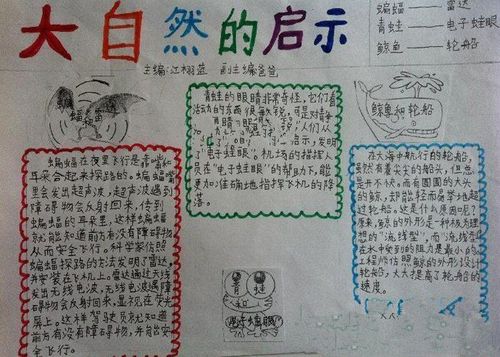 大自然的启示
蝙蝠——雷达
青蛙——电子蛙眼
鲸鱼——轮船
主编:江栩蓝 副主编爸爸
蝙蝠和雷
鲸鱼和轮船
蝙蝠在夜里飞行是靠嘴和
耳朵合起来探路的。蝙蝠嘴
里会发出超声波,超声波遇到
障碍物会反射回来,传到
蝙蝠的耳朵里,这样蝙蝠
就能知道前方有没有障碍物
从而安全飞行。科学家仿照
蝙蝠探路的方法发明了雷达,
并安装在飞机上。雷达通过天线
发出无线电波,无线电波遇障
碍物会反射回来,显现在荧光
屏上。这样驾驶员就能知道
前方有没有障碍物,并能安
全飞行。
青蛙的眼睛非常奇怪,它们看
活动的东西很敏锐,
人们从
启示,发明
了“电子蛙眼”。机场的指挥人
员在“电子蛙眼”的帮助下,能
更加准确地指挥飞机的降
落。
青蛙
电子蛙眼
在大海中航行的轮船,
虽然有着尖尖的船头,但总
是开不快。而有圆圆的大头
的鲸,却能轻而易举地超
过轮船。这是什么原因呢?
原来,鲸的外形是一种极为理
想的“流线型”,而“流线型”
在水中受到的阻力是最小的
工程师仿照鲸的外形设计
轮船,大大提高了轮船的
速度。